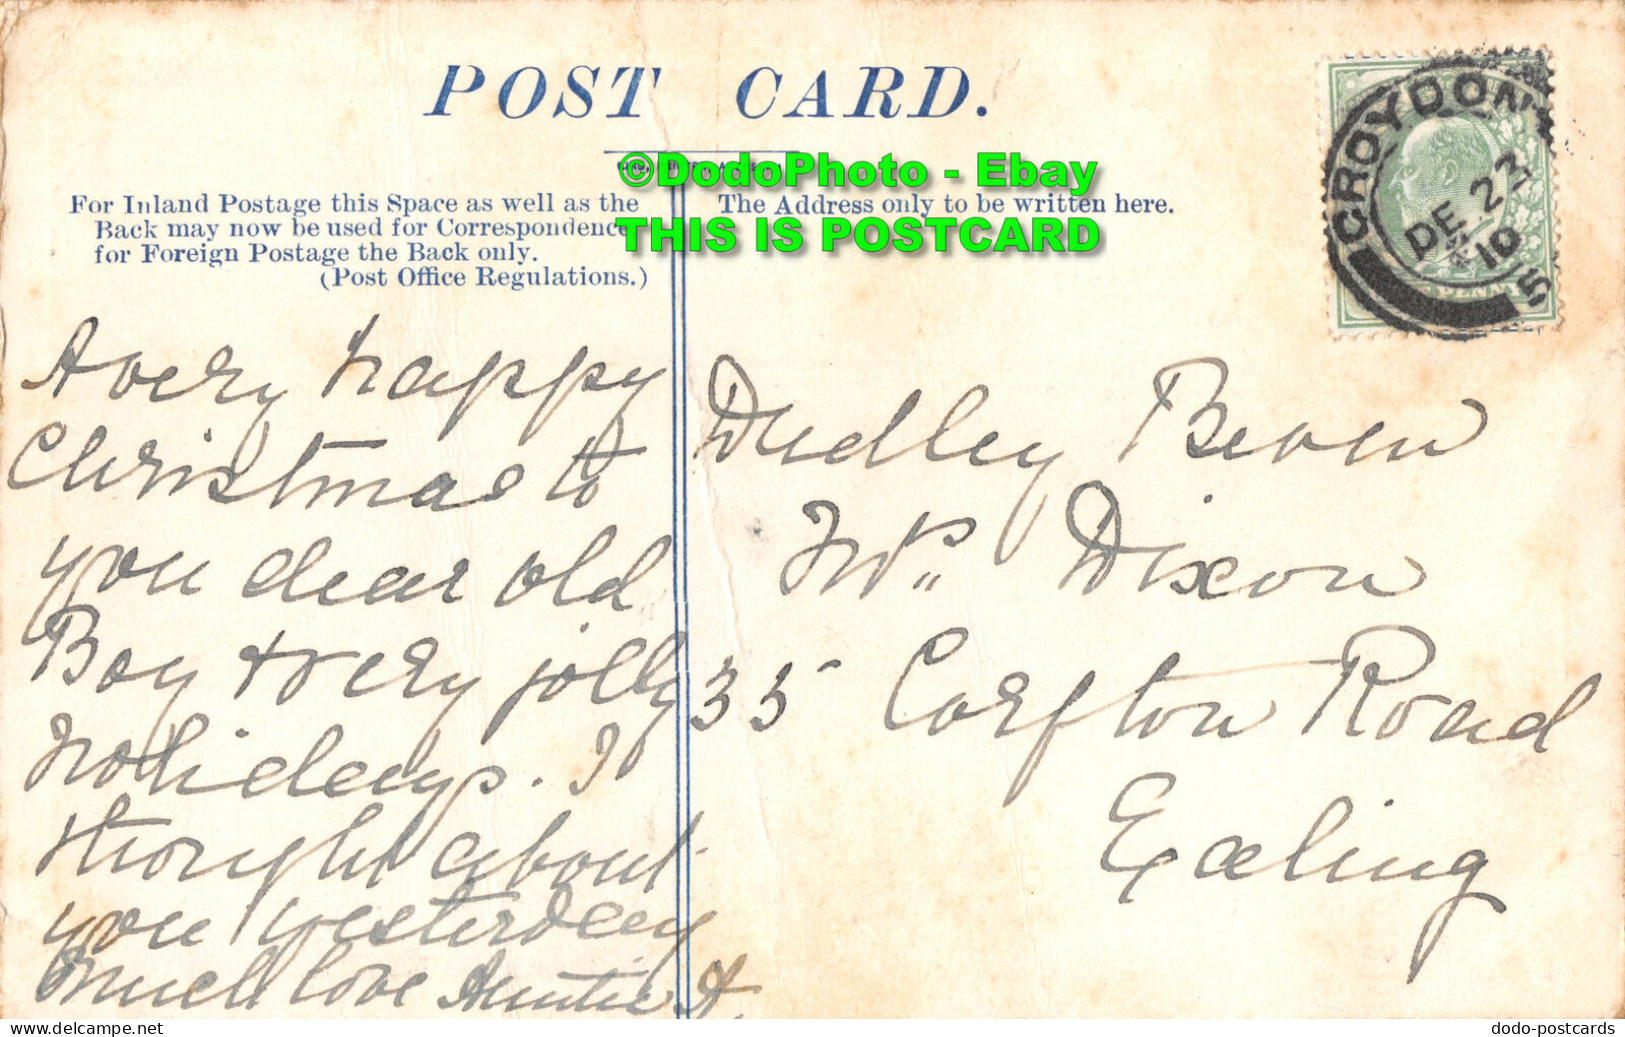 POST CARD.
©DodoPhoto - Ebay
THIS IS POSTCARD
For Inland Postage this Space as well as the
Back may now be used for Correspondence
for Foreign Postage the Back only.
(Post Office Regulations.)
The Address only to be written here.
CROYDON
DE 23
10
5
PENNY
A very happy
Christmas to
you dear old
Boy & very jolly
holidays. I
thought about
you yesterday
much love Auntie A.
Dudley Beven
Mrs Dixon
35 Corfton Road
Ealing
dodo-postcards
www.delcampe.net